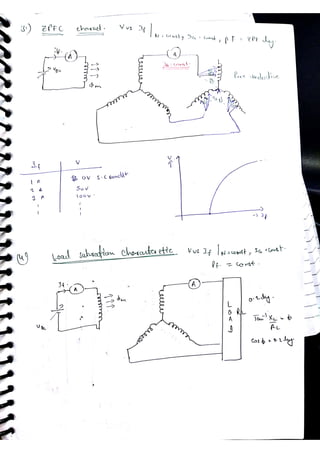 3) ZPFC charact. V vs If | N = const, Ia = const, pf = ZPF lag.
If
A
A
Ia const
Vdc
φm
Pure inductive
If V
1 A 0V S.C condit
2 A 50V
3 A 100V
V
If
4) Load saturation characteristic. V vs If | N = const, Ia = const.
Pf = const.
If
A
A
φm
Vdc
L
O
A
D
RL
0.8 lag.
Tan⁻¹ XL/RL = φ
cosφ = 0.8 lag